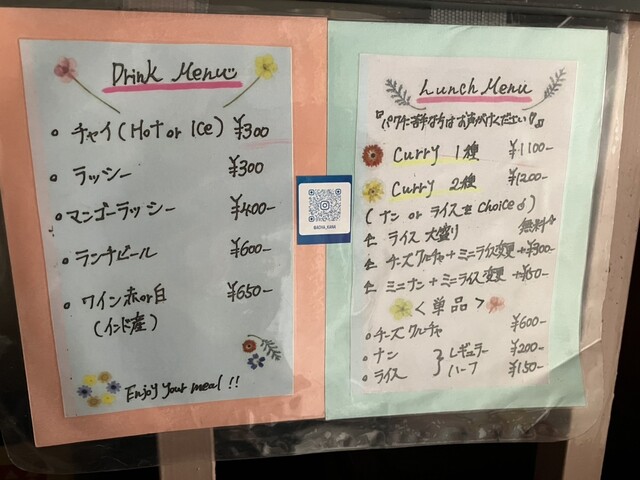 Drink Menu
チャイ(Hot or Ice) ¥300
ラッシー ¥300
マンゴーラッシー ¥400-
ランチビール ¥600-
ワイン赤or白 ¥650-
(インド産)
Enjoy Your meal!!
Lunch Menu
『パクチー苦手な方はお声がけください!』
Curry 1種 ¥1100-
Curry 2種 ¥1200-
(ナン or ライスを choice♂)
ライス 大盛り 無料
チーズクルチャ+ミニライス変更 +¥300-
ミニナン+ミニライス変更 +¥50-
<単品>
チーズクルチャ ¥600-
ナン } レギュラー ¥200-
ライス } ハーフ ¥150-